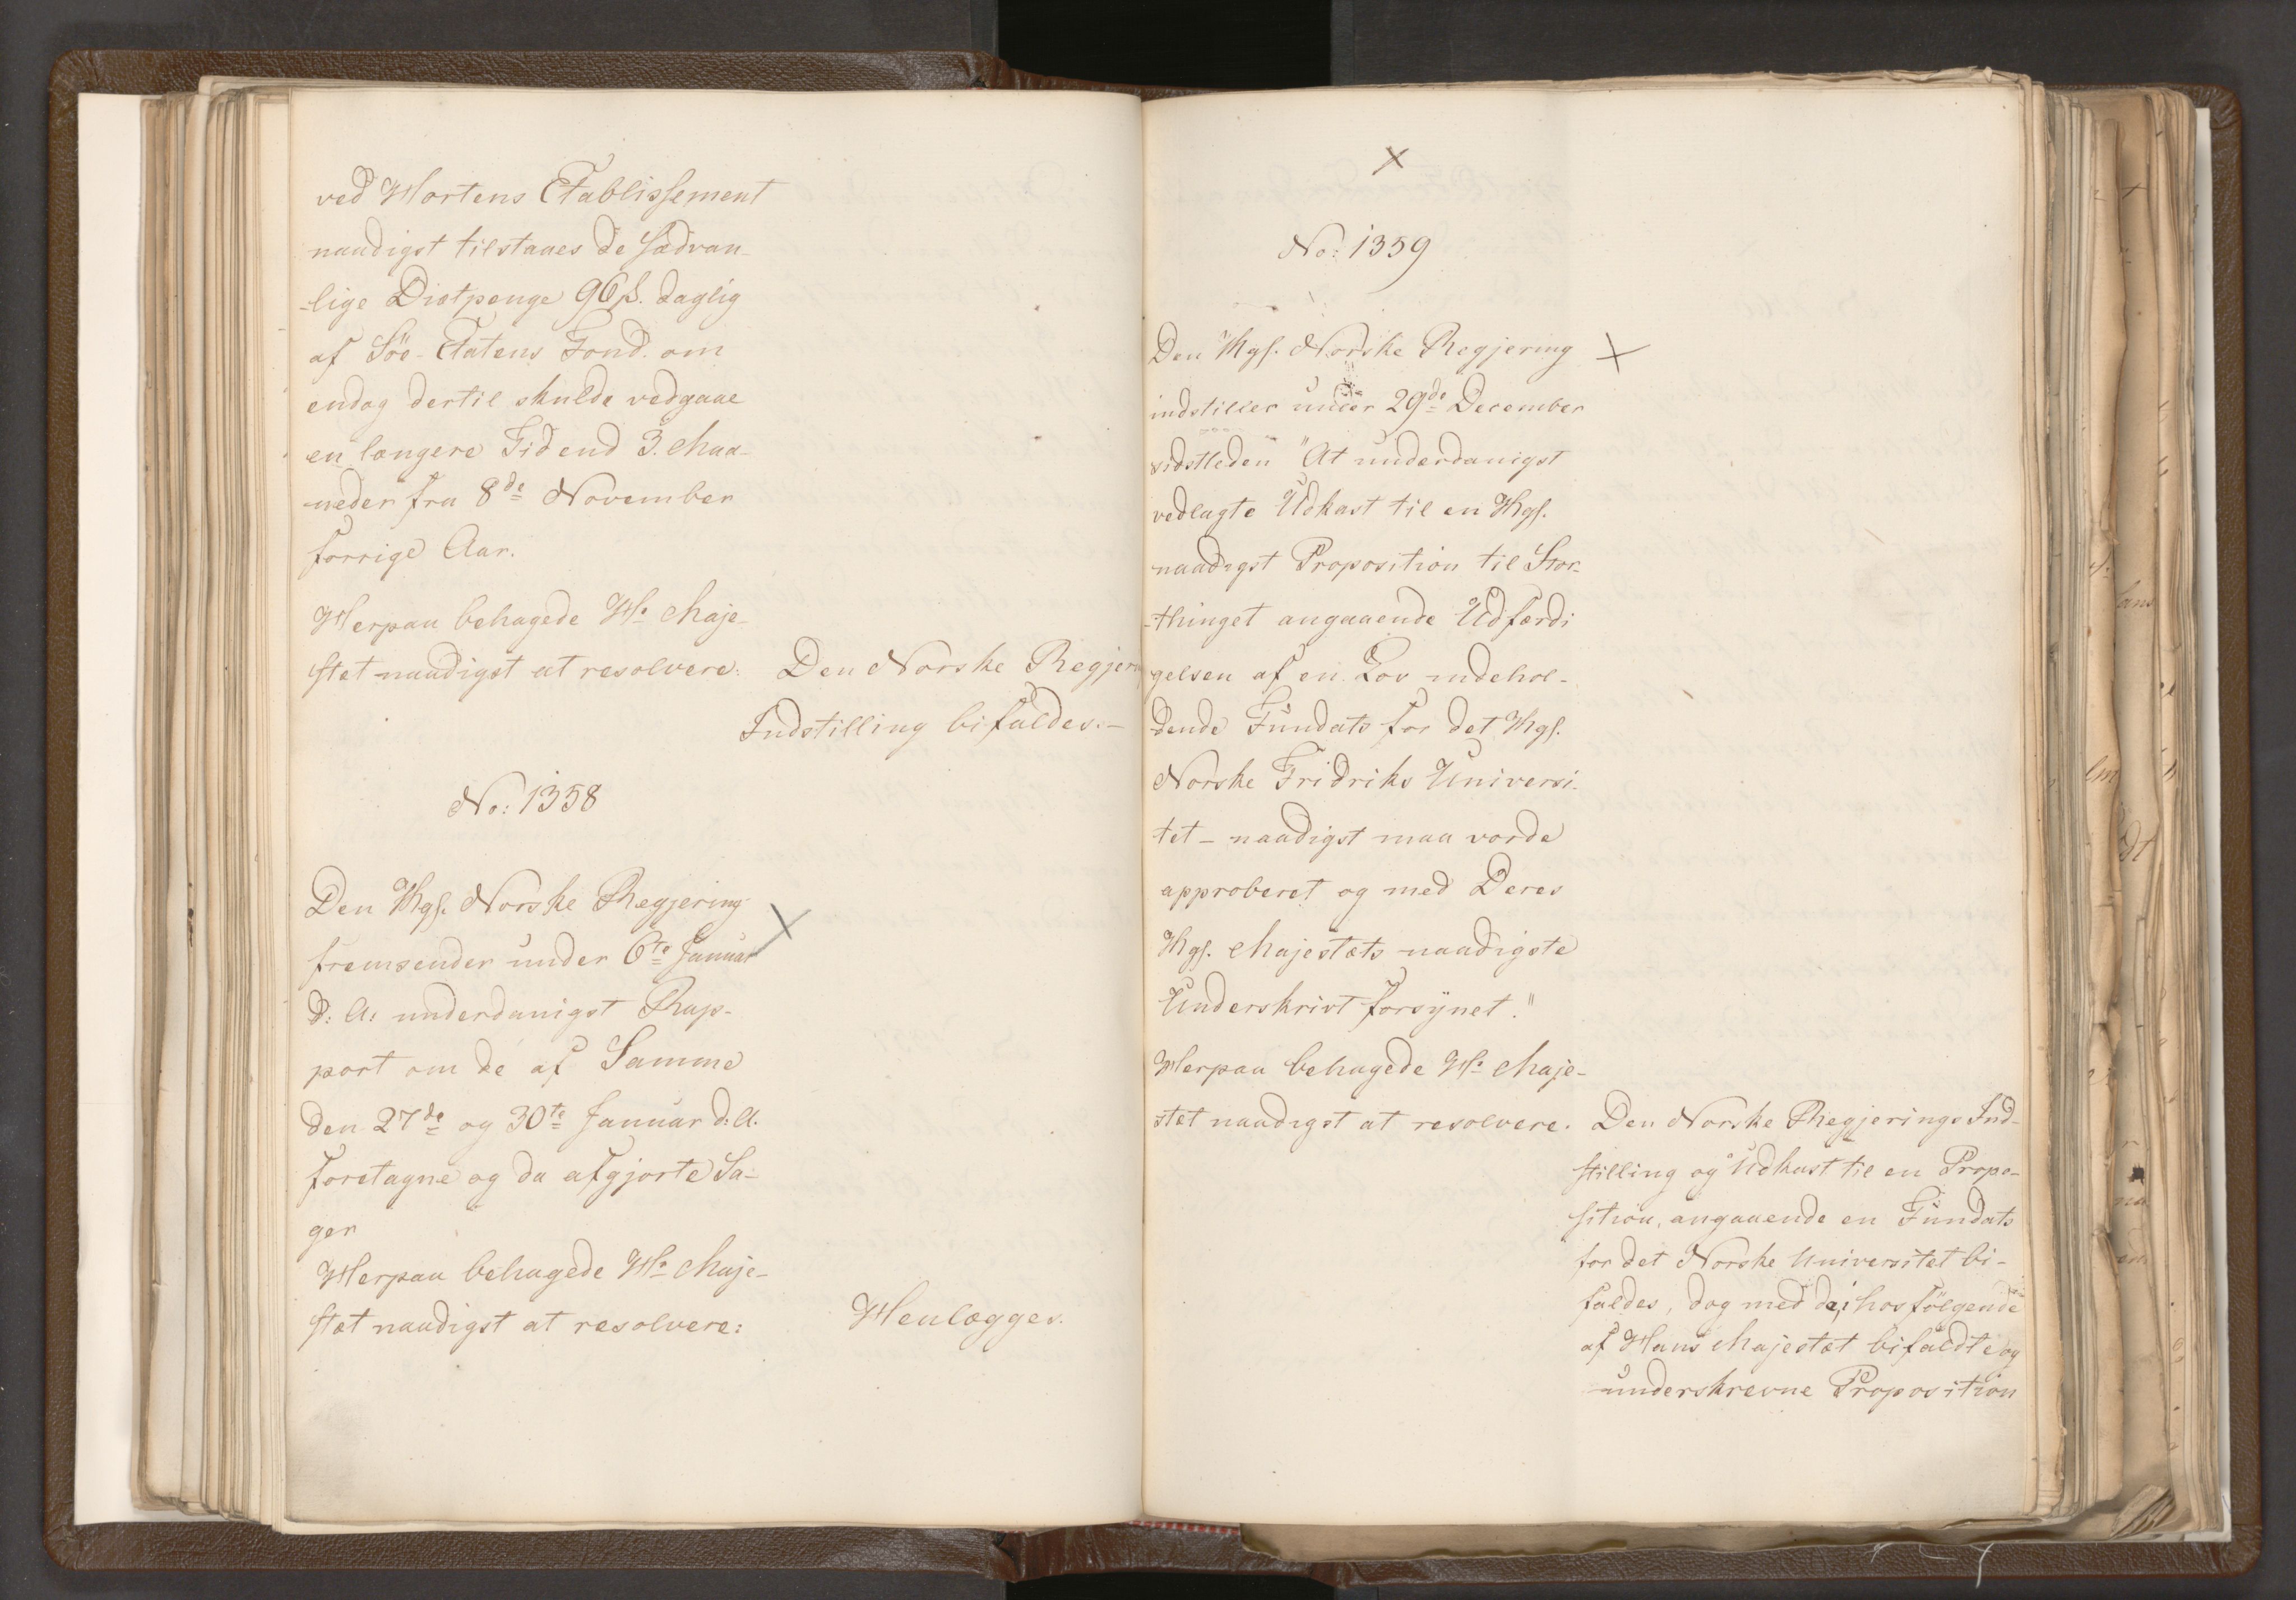 ved Hortens Etablissement
naadigst tilstaaes de sædvan-
-lige Diætpenge 96 ß. daglig
af Söe-Etatens Fond. om
endog dertil skulde vedgaae
en længere Tid end 3. Maa-
neder fra 8de November
forrige Aar.
Herpaa behagede Hs Maje-
stæt naadigst at resolvere:
Den Norske Regjer
Indstilling bifaldes.-
No: 1358
Den Kgl. Norske Regjering
fremsender under 6te Januar
d: A: underdanigst Rap-
port om de af Samme
den 27de og 30te Januar d: A.
foretagne og da afgjorte Sa-
ger
Herpaa behagede Hs Maje-
stæt naadigst at resolvere:
Henlægges.
No: 1359
Den Kgl. Norske Regjering
indstiller under 29de December
sidstleden "At underdanigst
vedlagte Udkast til en Kgl.
naadigst Proposition til Stor-
-thinget angaaende Udfærdi
gelsen af en Lov indehol-
dende Fundats for det Kgl.
Norske Fridriks Universi-
tet - naadigst maa vorde
approberet og med Deres
Kgl. Majestæts naadigste
Underskrivt forsynet."
Herpaa behagede Hs Maje-
stæt naadigst at resolvere.
Den Norske Regjerings Ind-
stilling og Udkast til en Propo-
sition, angaaende en Fundats
for det Norske Universitet bi-
faldes, dog med de, i hosfölgende
af Hans Majestæt bifaldte og
underskrevne Proposition